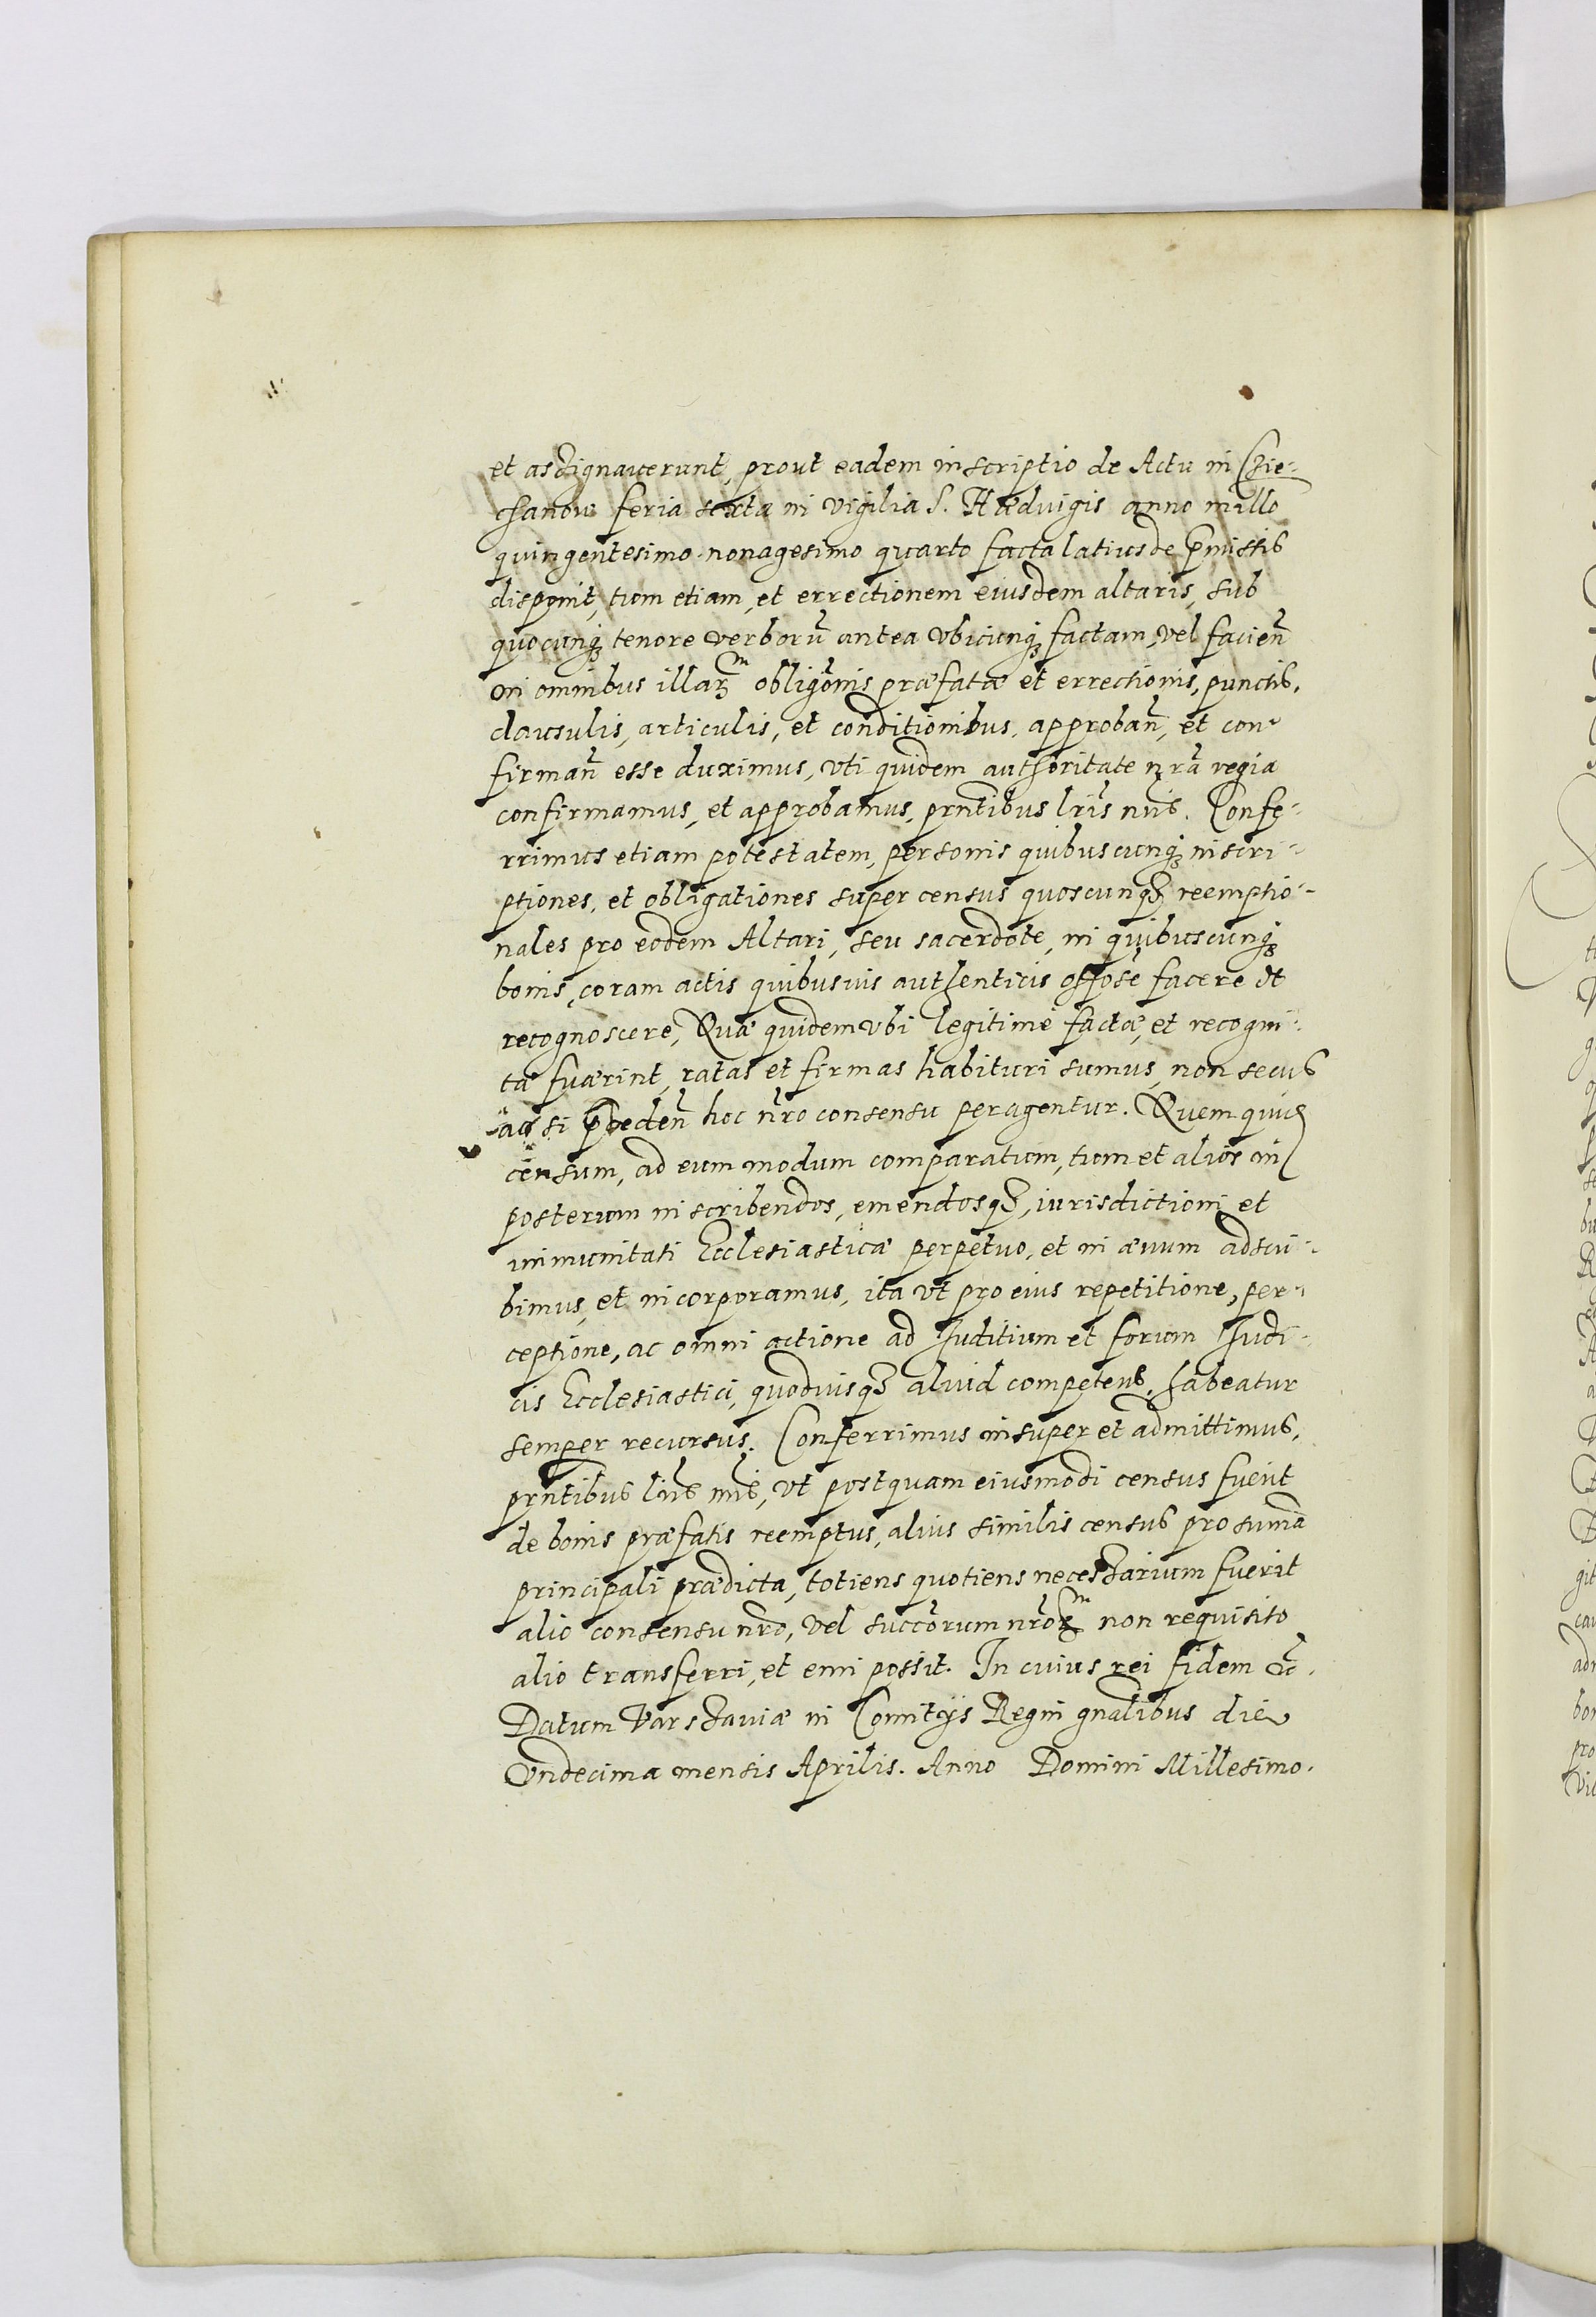 et assignaverunt, prout eadem inscriptio de Actu in Czie-
chanow feria sexta in vigilia S. Hædvigis anno millo
quingentesimo nonagesimo quarto facta latius de p̄missis
disponit, tum etiam, et errectionem eiusdem altaris, sub
quocunq₃ tenore verborū antea vbicunq₃ factam, vel facien̄
in omnibus illaꝝ obligōnis præfatæ et errectionis, punctis,
clausulis, articulis, et conditionibus, approban̄, et con-
firman̄ esse duximus, vti quidem authoritate nrā regia
confirmamus, et approbamus, prntibus lris nris. Confe-
rrimus etiam potestatem, personis quibuscunq₃ inscri-
ptiones, et obligationes super census quoscunq₃ reemptio-
nales pro eodem Altari, seu sacerdote, in quibuscunq₃
bonis, coram actis quibusvis authenticis facere et
recognoscere, Quæ quidem vbi legitime factæ, et recogni-
tæ fuærint, ratas et firmas habituri sumus, non secus
ac si p̄ceden̄ hoc nrō consensu peragentur. Quem quid
censum, ad eum modum comparatum, tum et alios in
posterum inscribendos, emendosq₃, iurisdictioni et
immunitati Ecclesiasticæ perpetuo, et in ævum adscri-
bimus, et incorporamus, ita vt pro eius repetitione, per-
ceptione, ac omni actione ad Iuditium et forum Iudi-
cis Ecclesiastici, quodvisq₃ aliud competens, habeatur
semper recursus. Conferrimus insuper et admittimus,
prntibus lris nris, vt postquam eiusmodi census fuerit
de bonis præfatis reemptus, alius similis census pro sumā
principali prædicta, totiens quotiens necessarium fuerit
alio consensu nrō, vel succōrum nrōꝝ non requisito
alio transferri, et emi possit. In cuius rei fidem &c̄.
Datum Varssaviæ in Comitijs Regni gnālibus die
Vndecima mensis Aprilis. Anno Domini Millesimo.